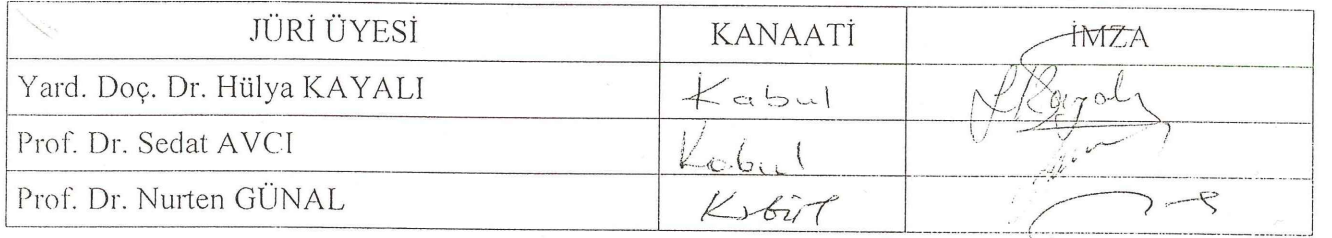 JÜRİ ÜYESİ KANAATİ İMZA
Yard. Doç. Dr. Hülya KAYALI Kabul
Prof. Dr. Sedat AVCI Kabul
Prof. Dr. Nurten GÜNAL Kabül